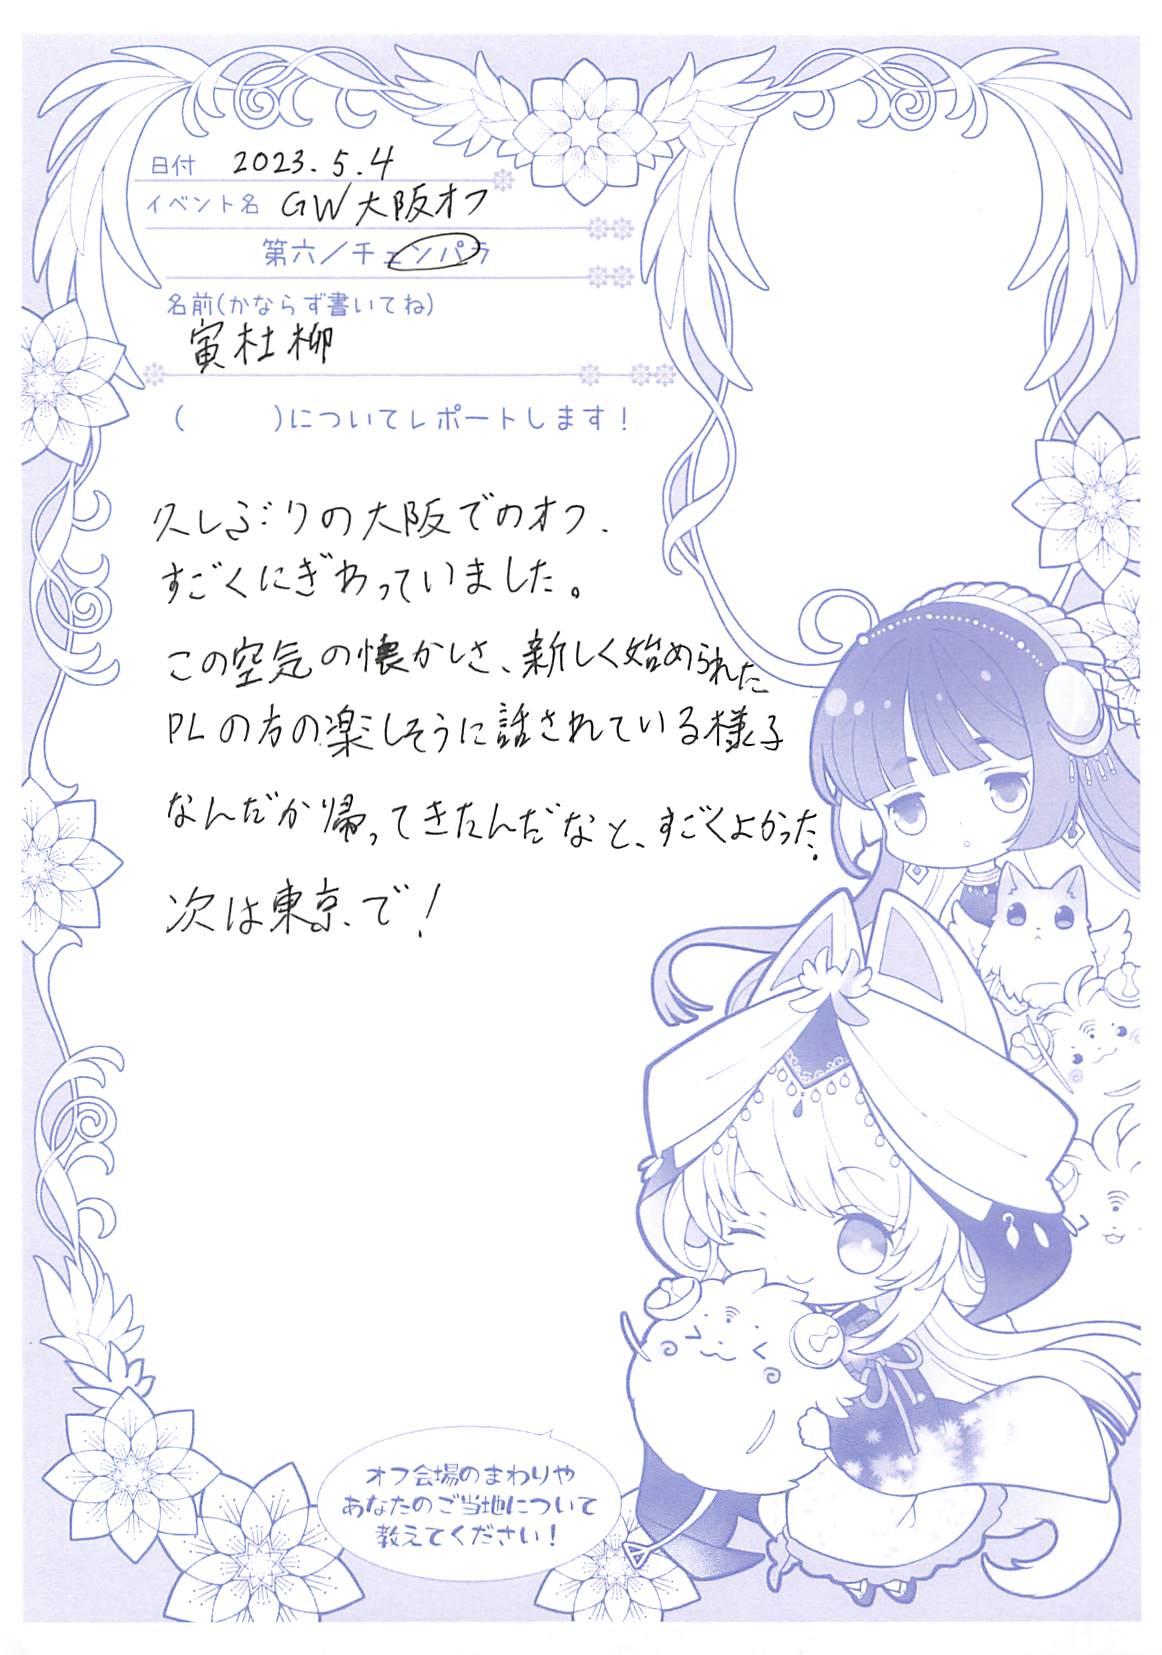 日付 2023.5.4
イベント名 GW大阪オフ
第六/チェンパラ
名前(かならず書いてね)
寅杜柳
(　　　)についてレポートします!
久しぶりの大阪でのオフ、
すごくにぎわっていました。
この空気の懐かしさ、新しく始められた
PLの方の楽しそうに話されている様子
なんだか帰ってきたんだなと、すごくよかった.
次は東京で!
オフ会場のまわりや
あなたのご当地について
教えてください!